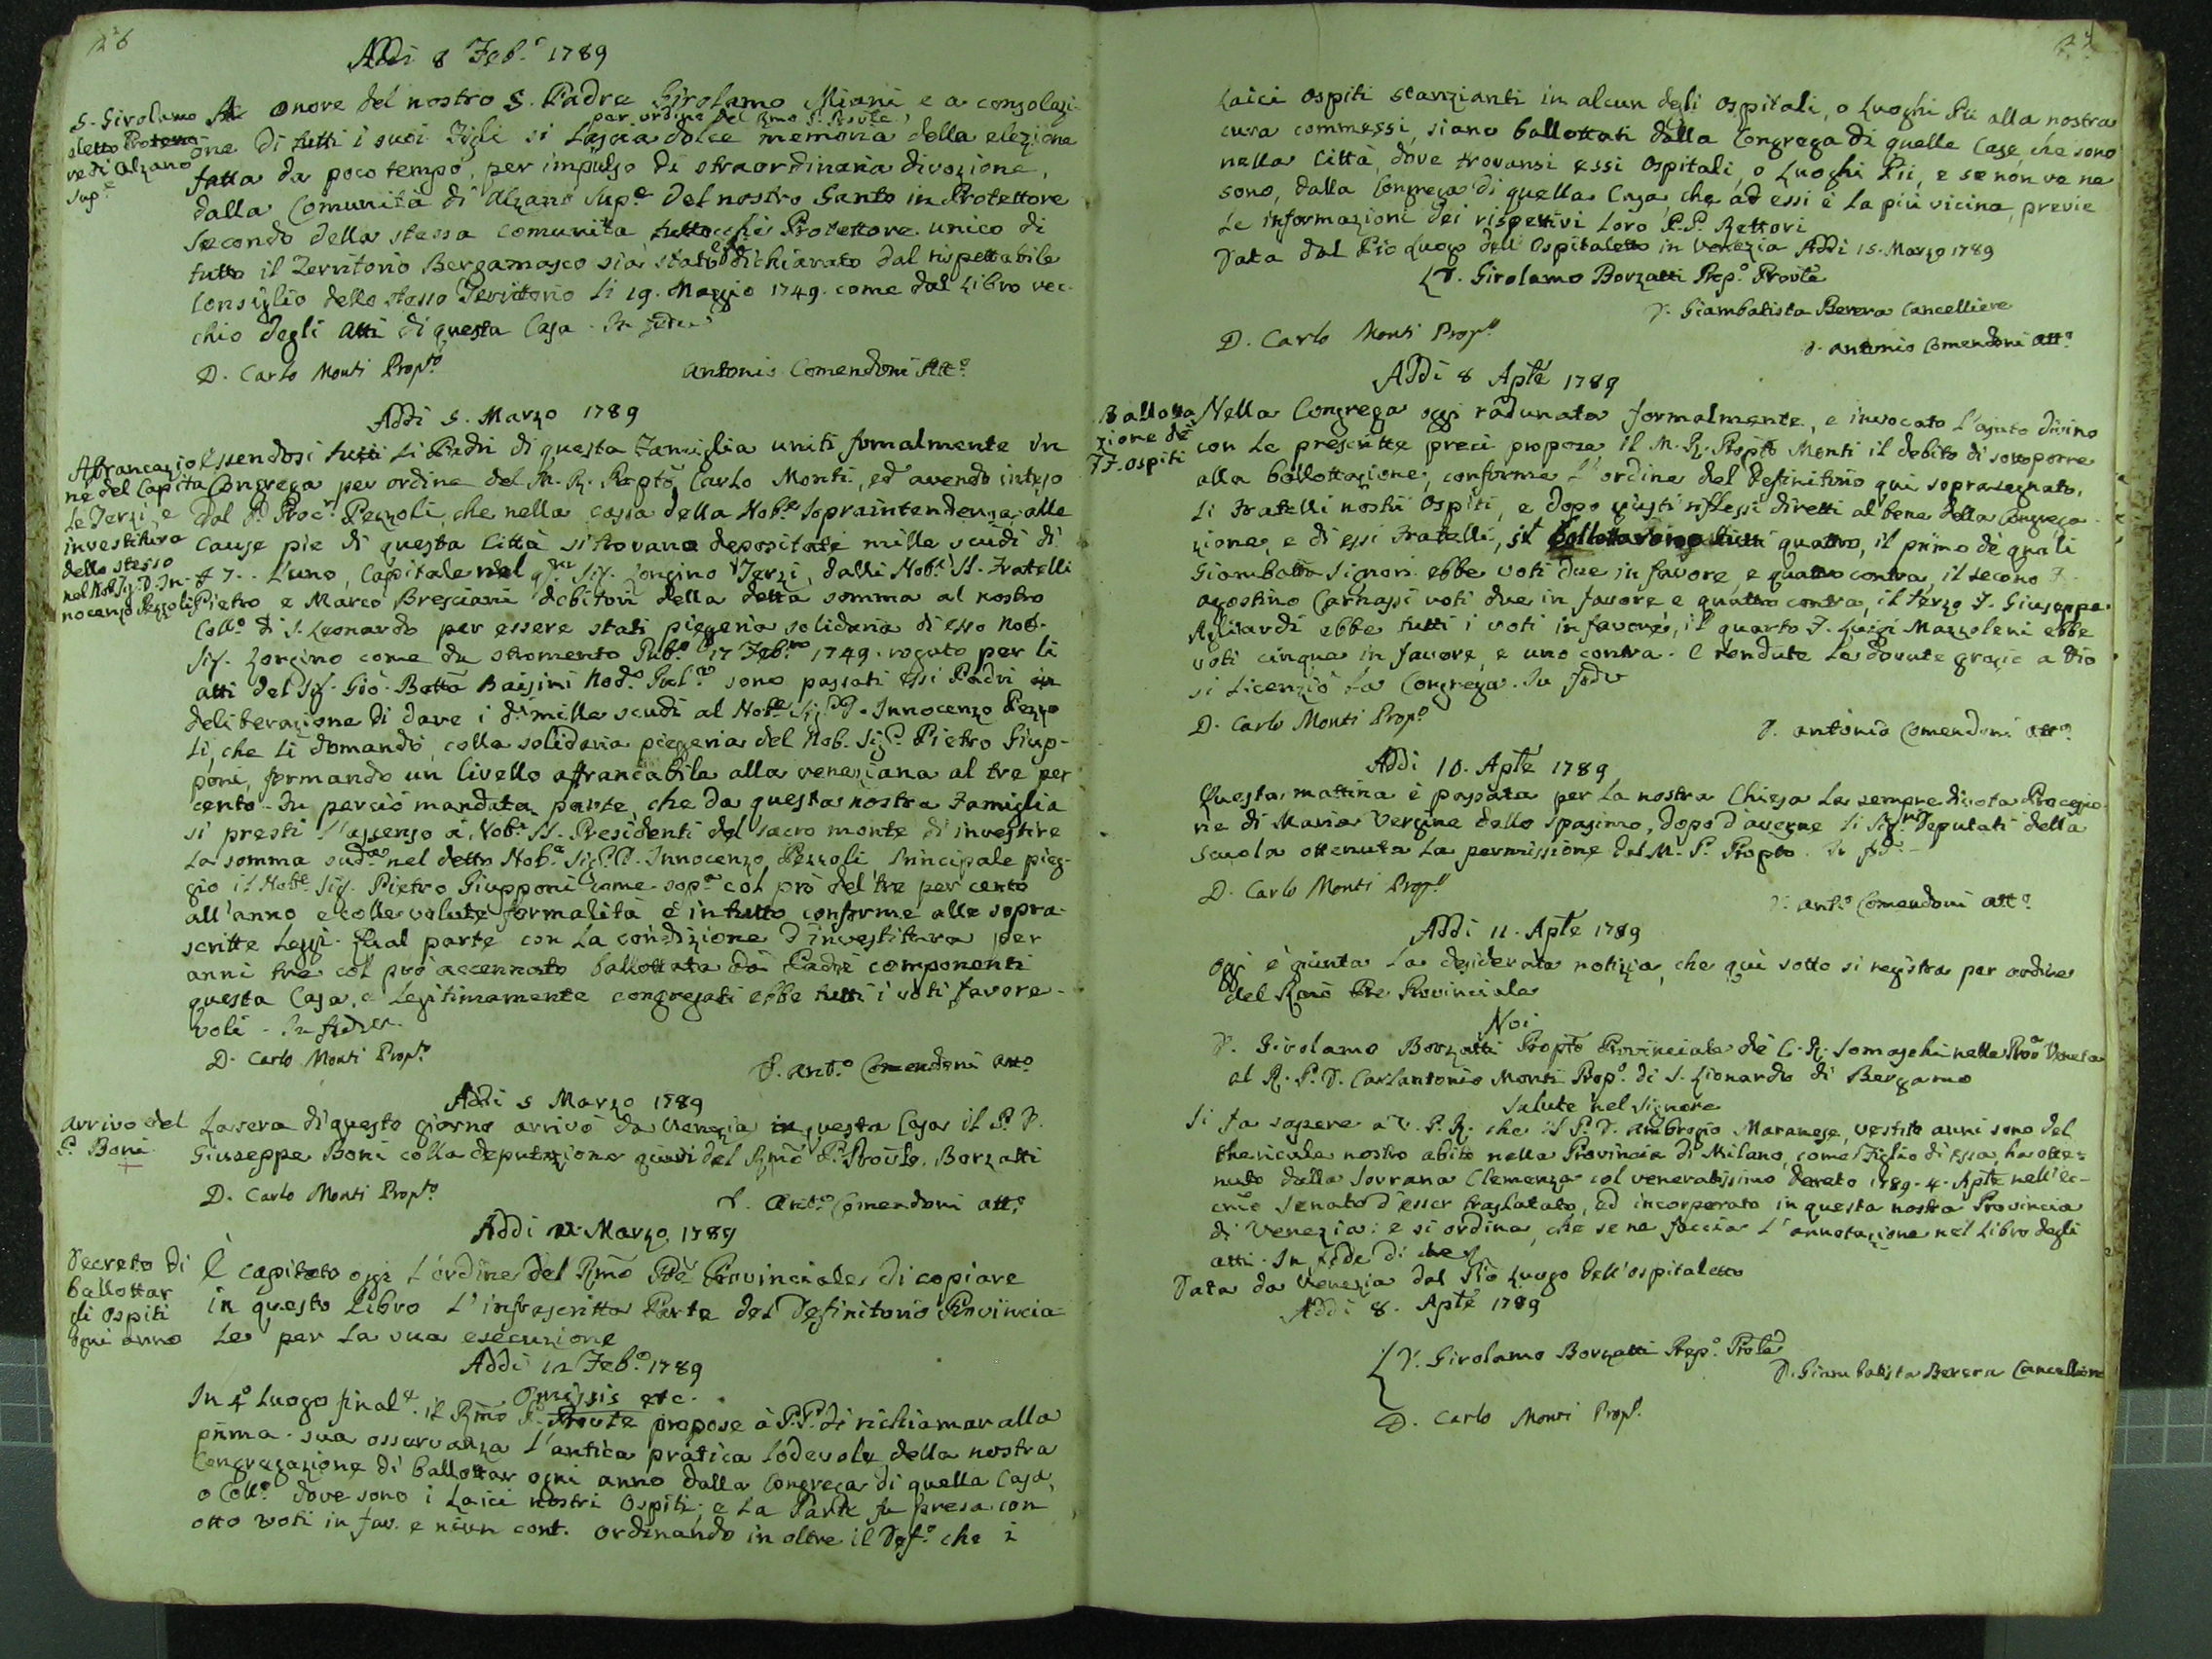 126
Addi 8 Feb.º 1789
S. Girolamo
eletto Protetto
re di Alzano
Sup.e
A onore del nostro S. Padre Girolamo Miani e a consolazi-
per ordine del Rmo P. Prõvle,
one di tutti i suoi Figli si lascia dolce memoria della elezione
fatta da poco tempo, per impulso di straordinaria divozione,
dalla Comunità di Alzano Sup.e del nostro Santo in Protettore
secondo della stessa Comunità, tuttochè Protettore unico di
tutto il Territorio Bergamasco sia stato dichiarato dal rispettabile
Consiglio dello stesso Territorio li 19. Maggio 1749. come dal Libro vec-
chio degli Atti di questa Casa. In fede
D. Carlo Monti Prop.to
Antonio Comendoni Att.º
Addi 5. Marzo 1789
Affrancazio
ne del Capita
le Terzi, e
investitura
dello stesso
nel Nob. Sig. D. In-
nocenzo Pezzoli
Essendosi tutti li Padri di questa Famiglia uniti formalmente in
Congrega per ordine del M. R. Proptõ Carlo Monti, ed avendo inteso
dal P. Proc.r Pezzoli, che nella cassa della Nob.e Sopraintendenza alle
cause pie di questa Città si trovano depositati mille scudi di
£ 7.. l'uno, Capitale del Sig. Longino Terzi, dalli Nob.i SS. Fratelli
Pietro, e Marco Bresciani debitori della detta somma al nostro
Coll.º di S. Leonardo per essere stati piegeria solidaria di esso Nob.
Sig. Longino come da stromento Pub.º 17 Feb.ro 1749. rogato per li
atti del Sig. Gio. Battã Baisini Nod.º sono passati essi Padri in
deliberazione di dare i d.i mille scudi al Nob.e Sig. D. Innocenzo Pezzo
li, che li domandò, colla solidaria piegeria del Nob. Sig. Pietro Giup-
poni, formando un livello affrancabile alla veneziana al tre per
cento. Fu perciò mandata parte, che da questa nostra Famiglia
si presti l'assenso a' Nob.i SS. Presidenti del sacro monte di investire
la somma sud.a nel detto Nob.e Sig. D. Innocenzo Pezzoli Principale pieg-
gio il Nob.e Sig. Pietro Giupponi come sop.a col prò del tre per cento
all'anno e colle volute formalità e in tutto conforme alle sopra-
scritte Leggi. Qual parte con la condizione d'investitura per
anni tre col prò accennato ballottata da' Padri componenti
questa Casa, e legitimamente congregati ebbe tutti i voti favore-
voli. In fede
D. Carlo Monti Prop.to
D. Ant.º Comendoni Att.º
Addi 5 Marzo 1789
Arrivo del
P. Boni
La sera di questo giorno arrivò da Venezia in questa Casa il P. D.
Giuseppe Boni colla deputazione quivi del Rmõ P. Prõvle. Borzatti
D. Carlo Monti Prop.to
D. Ant.º Comendoni Att.º
Addi Marzo 1789
Decreto di
ballottar
gli Ospiti
ogni anno
È capitato oggi l'ordine del Rmõ Pdẽ Provinciale di copiare
in questo Libro l'infrascritta Parte del Definitorio Provincia-
le per la sua esecuzione
Addi 12 Feb.º 1789
Omissis etc.
In 4º luogo final.e il Rmõ P. Provle propose a' P.P. di richiamar alla
prima sua osservanza l'antica pratica lodevole della nostra
Congregazione di ballottar ogni anno dalla Congrega di quella Casa,
o Coll.º dove sono i Laici nostri Ospiti; e la Parte fu presa con
otto voti in fav. e niun cont. ordinando in oltre il Def.º che i
Laici Ospiti stanzianti in alcun degli Ospitali, o Luoghi Pii alla nostra
cura commessi, siano ballottati dalla Congrega di quelle Case che sono
nella Città, dove trovansi essi Ospitali, o Luoghi Pii, e se non ve ne
sono, dalla Congrega di quella Casa, che ad essi è la più vicina, previe
le informazioni dei rispettivi loro P.P. Rettori
Data dal Pio Luogo dell'Ospitaletto in Venezia Addi 15. Marzo 1789
D. Girolamo Borzatti Prep.º Provle
D. Giambatista Berera Cancelliere
D. Carlo Monti Prop.º
D. Antonio Comendoni Att.º
Addi 8 Aplẽ 1789
Ballotta
zione de'
FF. Ospiti
Nella Congrega oggi radunata formalmente, e invocato l'ajuto divino
con le prescritte preci propose il M. R. Proptõ Monti il debito di sottoporre
alla ballottazione, conforme l'ordine del Definitorio qui soprasegnato,
li Fratelli nostri Ospiti, e dopo giusti riflessi diretti al bene della Congrega-
zione, e di essi Fratelli, si ballottarono tutti quattro, il primo de' quali
Giombattã Signori ebbe voti due in favore, e quattro contra, il secondo F.
Agostino Carnassi voti due in favore e quattro contra, il terzo F. Giuseppe
Agliardi ebbe tutti i voti in favore, il quarto F. Luigi Mazzoleni ebbe
voti cinque in favore, e uno contra. E rendute le dovute grazie a Dio
si licenziò la Congrega. In fede
D. Carlo Monti Prop.º
D. Antonio Comendoni Att.º
Addi 10. Aplẽ 1789
Questa mattina è passata per la nostra Chiesa la sempre divota Procession-
ne di Maria Vergine dello Spasimo, dopo d'averne li Sig.ri Deputati della
Scuola ottenuta la permissione dal M. P. Propto. In fd.e
D. Carlo Monti Prop.º
D. Ant.º Comendoni Att.º
Addi 11. Aplẽ 1789
Oggi è giunta la desiderata notizia, che qui sotto si registra per ordine
del Rmõ Pre Provinciale
Noi
D. Girolamo Borzatti Proptõ Provinciale de' C. R. Somaschi nella Prov.a Veneta
al R. P. D. Carlantonio Monti Prop.º di S. Lionardo di Bergamo
Salute nel Signore
Si fa sapere a V. P. R. che il P. D. Ambrogio Maranese, vestito anni sono del
chericale nostro abito nella Provincia di Milano, come Figlio di Essa, ha otte-
nuto dalla Sovrana Clemenza col veneratissimo decreto 1789. 4. Aplẽ nell'ec-
cmõ Senato d'esser traslatato, ed incorporato in questa nostra Provincia
di Venezia: e si ordina, che se ne faccia l'annotazione nel Libro degli
atti. In fede di che
Data da Venezia dal Pio Luogo dell'Ospitaletto
Addi 8. Aplẽ 1789
D. Girolamo Borzatti Prep.º Prõle
D. Giambatista Berera Cancelliere
D. Carlo Monti Prop.º